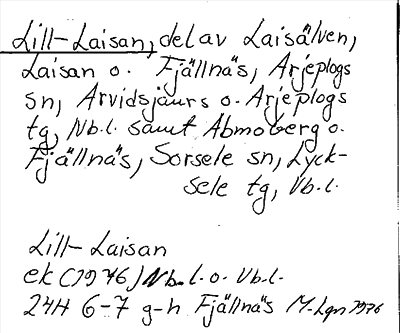 Lill-Laisan, del av Laisälven,
Laisan o. Fjällnäs, Arjeplogs
sn, Arvidsjaurs o. Arjeplogs
tg, Nb.l. samt Abmoberg o.
Fjällnäs, Sorsele sn, Lyck-
sele tg, Vb.l.
Lill-Laisan
ek (1976) Nb.l. o. Vb.l.
24H 6-7 g-h Fjällnäs M. Lgn 1976